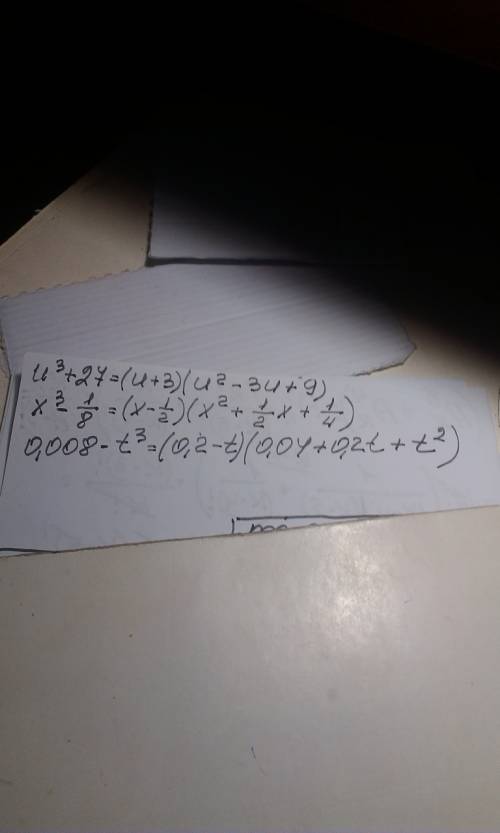 u³+27=(u+3)(u²-3u+9)
x³-1/8=(x-1/2)(x²+1/2x+1/4)
0,008-t³=(0,2-t)(0,04+0,2t+t²)